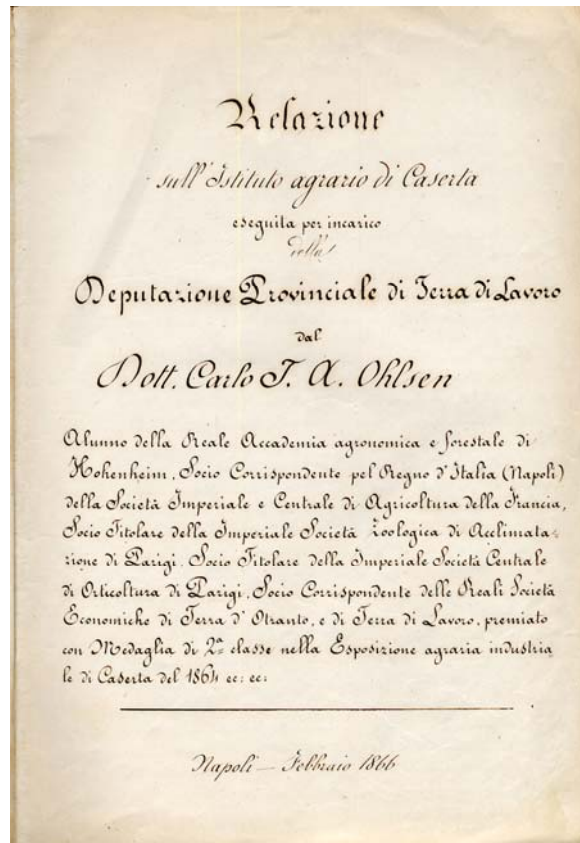 Relazione
sull'Istituto agrario di Caserta
eseguita per incarico
della
Deputazione Provinciale di Terra di Lavoro
dal
Dott. Carlo T. A. Ohlsen
Alunno della Reale Accademia agronomica e forestale di
Hohenheim, Socio Corrispondente pel Regno d'Italia (Napoli)
della Società Imperiale e Centrale di Agricoltura della Francia,
Socio Titolare della Imperiale Società Zoologica di Acclimata-
zione di Parigi, Socio Titolare della Imperiale Società Centrale
di Orticoltura di Parigi, Socio Corrispondente delle Reali Società
Economiche di Terra d'Otranto, e di Terra di Lavoro, premiato
con Medaglia di 2ª classe nella Esposizione agraria industria
le di Caserta del 1864 ec: ec:
Napoli — Febbraio 1866